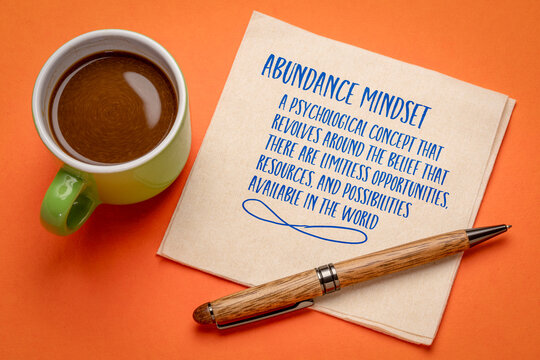 ABUNDANCE MINDSET
A PSYCHOLOGICAL CONCEPT THAT
REVOLVES AROUND THE BELIEF THAT
THERE ARE LIMITLESS OPPORTUNITIES,
RESOURCES, AND POSSIBILITIES
AVAILABLE IN THE WORLD